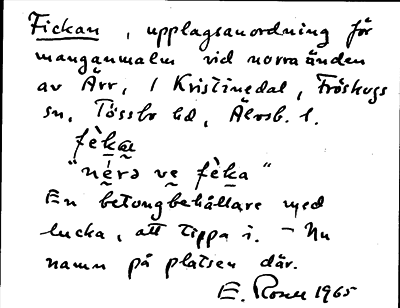 Fickan, upplagsanordning för
manganmalm vid norra änden
av Ärr, i Kristinedal, Fröskogs
sn, Tössbo hd, Älvsb. l.
fèkaɶ
"nérə ve fèka"
En betongbehållare med
lucka, att tippa i. – Nu
namn på platsen där.
E. 1965